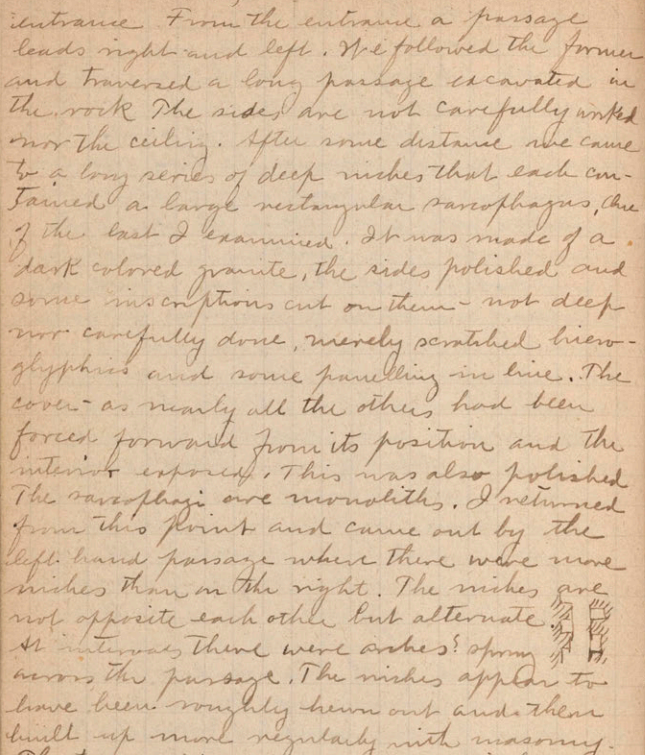 entrance From the entrance a passage
leads right and left. We followed the former
and traversed a long passage excavated in
the rock The sides are not carefully worked
nor the ceiling. After some distance we came
to a long series of deep niches that each con-
tained a large rectangular sarcophagus, One
of the last I examined. It was made of a
dark colored granite, the sides polished and
some inscriptions cut on them - not deep
nor carefully done, merely scratched hiero-
glyphics and some panelling in line. The
cover - as nearly all the others had been
forced forward from its position and the
interior exposed. This was also polished
The sarcophagi are monoliths. I returned
from this point and came out by the
left hand passage where there were more
niches than on the right. The niches are
not opposite each other but alternate.
At intervals there were arches? spring
across the passage. The niches appear to
have been roughly hewn out and then
built up more regularly with masonry.